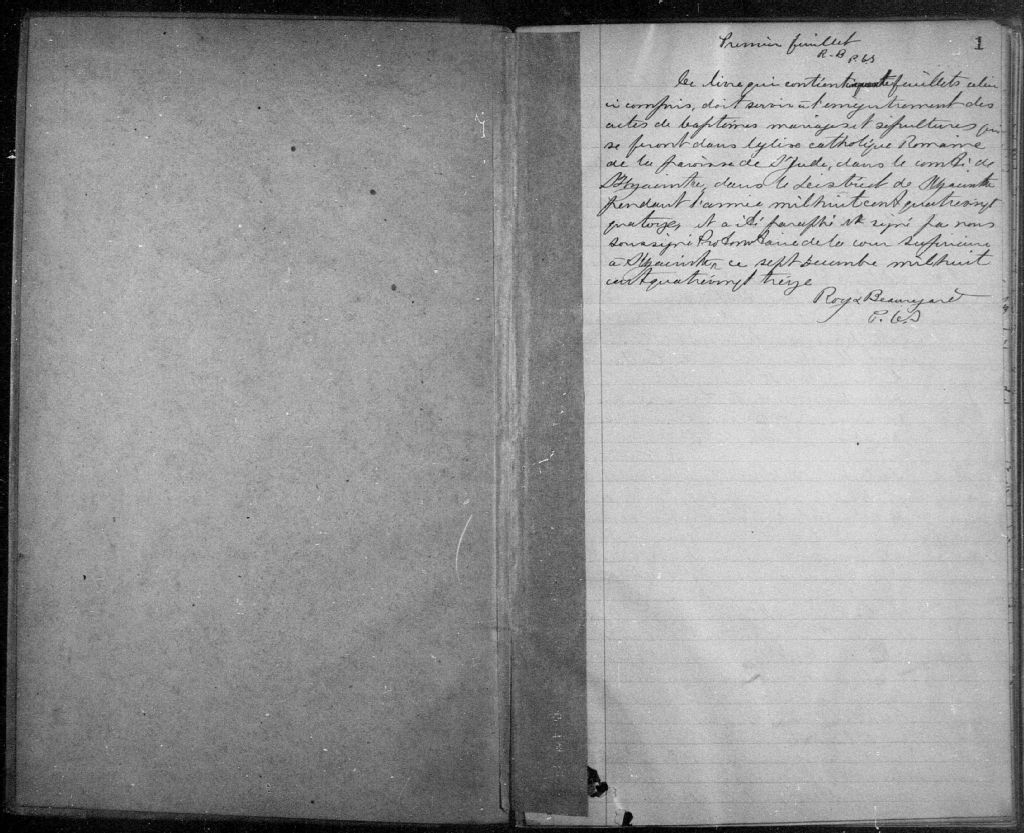 1
Premier feuillet
R-B P.C.S
Ce livre qui contient feuillets celui
ci compris, doit servir à l'enregistrement des
actes de baptêmes mariages et sépultures qui
se feront dans l'église catholique Romaine
de la paroisse de St Jude, dans le comté de
St Hyacinthe, dans le District de St Hyacinthe
pendant l'année mil huit cent quatrevingt
quatorze, et a été paraphé et signé par nous
soussigné Protonotaire de la cour supérieure
à St Hyacinthe, ce sept décembre mil huit
cent quatrevingt treize
Roy & Beauregard
P.C.S